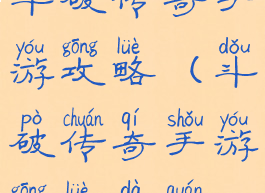 斗破传奇手
yóu gōng lüè dǒu
游攻略（斗
pò chuán qí shǒu yóu
破传奇手游
gōng lüè dà quán